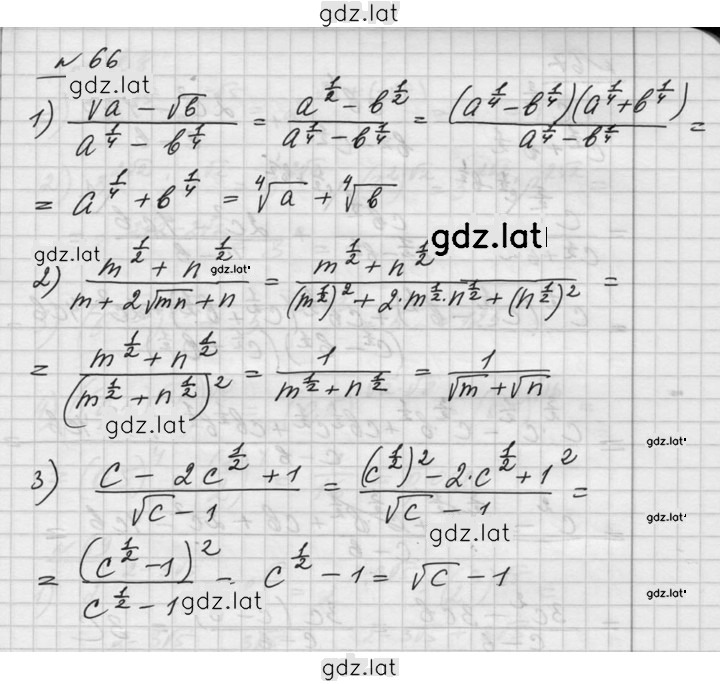 gdz.lat
№ 66
gdz.lat
1) (√a - √b)/(a^(1/4) - b^(1/4)) = (a^(1/2) - b^(1/2))/(a^(1/4) - b^(1/4)) = ((a^(1/4) - b^(1/4))(a^(1/4) + b^(1/4)))/(a^(1/4) - b^(1/4)) =
= a^(1/4) + b^(1/4) = ⁴√a + ⁴√b
gdz.lat gdz.lat gdz.lat
2) (m^(1/2) + n^(1/2))/(m + 2√mn + n) = (m^(1/2) + n^(1/2))/((m^(1/2))^2 + 2·m^(1/2)·n^(1/2) + (n^(1/2))^2) =
= (m^(1/2) + n^(1/2))/(m^(1/2) + n^(1/2))^2 = 1/(m^(1/2) + n^(1/2)) = 1/(√m + √n)
gdz.lat gdz.lat
3) (c - 2c^(1/2) + 1)/(√c - 1) = ((c^(1/2))^2 - 2·c^(1/2) + 1^2)/(√c - 1) =
gdz.lat gdz.lat
= (c^(1/2) - 1)^2/(c^(1/2) - 1) = c^(1/2) - 1 = √c - 1
gdz.lat gdz.lat
gdz.lat